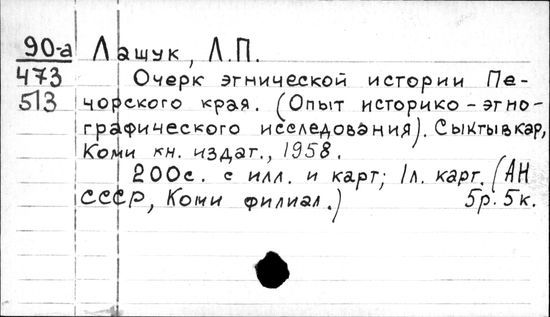 90-а Лашук, Л.П.
473 Очерк этнической истории Пе-
513 чорского края. (Опыт историко-этно-
графического исследования). Сыктывкар,
Коми кн. издат., 1958.
200с. с илл. и карт; 1л. карт. (АН
СССР, Коми филиал.) 5р. 5к.